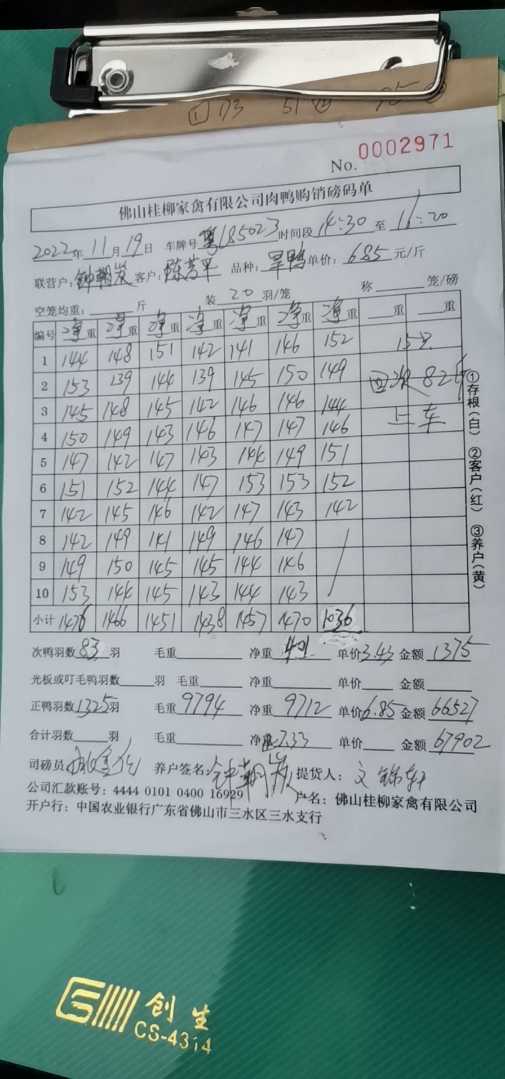 ① 173 51
No. 0002971
佛山桂柳家禽有限公司肉鸭购销磅码单
2022年 11月 19日 车牌号 粤185023 时间段 14:30 至 16:20
联营户: 客户: 陈芳平 品种: 旱鸭 单价: 6.85 元/斤
空笼均重: 斤 装 20 羽/笼 称 笼/磅
编号 净重 净重 净重 净重 净重 净重 净重 重 重
1 144 148 151 142 141 146 152
2 153 139 144 139 145 150 149
3 145 148 145 142 146 146 144
4 150 149 143 146 147 147 146 上车
5 147 142 147 143 144 149 151
6 151 152 144 147 153 153 152
7 142 145 146 142 147 143 142
8 142 149 141 149 146 147
9 149 150 145 145 144 146
10 153 144 145 143 144 143
小计 1476 1466 1451 1438 1457 1470 1036
①存根(白) ②客户(红) ③养户(黄)
次鸭羽数 83 羽 毛重 净重 401 单价 3.43 金额 1375
光板或叮毛鸭羽数 羽 毛重 净重 单价 金额
正鸭羽数 1325 羽 毛重 9794 净重 9712 单价 6.85 金额 66527
合计羽数 羽 毛重 净重 7.33 单价 金额 67902
司磅员 养户签名: 提货人:
公司汇款账号: 4444 0101 0400 16929 户名: 佛山桂柳家禽有限公司
开户行: 中国农业银行广东省佛山市三水区三水支行
创生
CS-4314